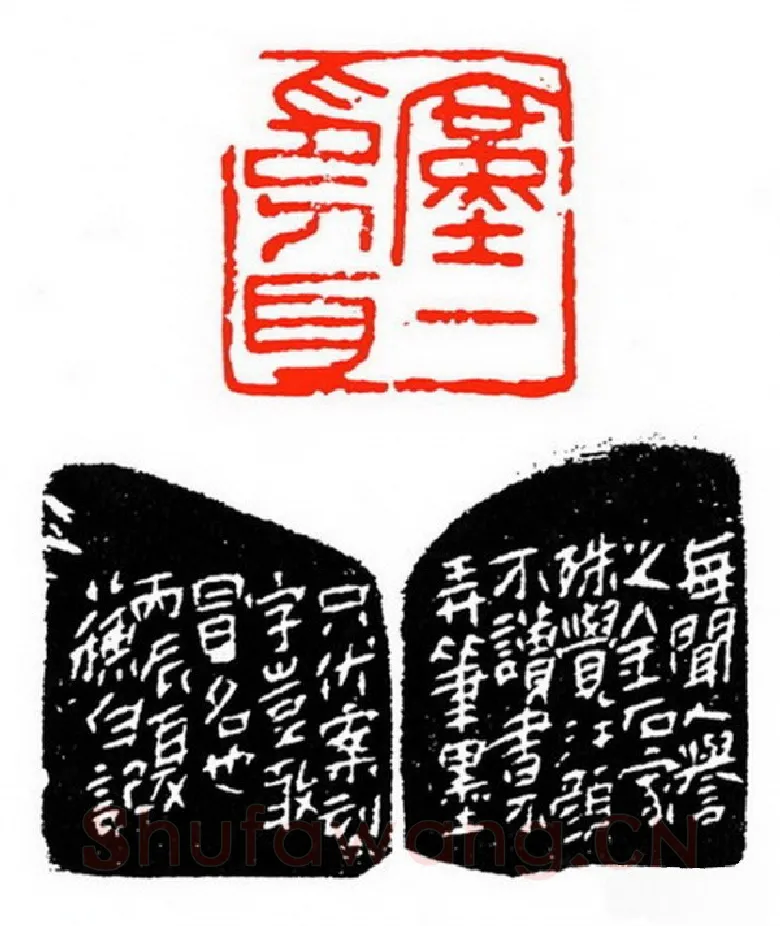 每聞人譽
以金石家
殊覺汗顏
不讀書不
弄筆墨
只伏案刻
字豈敢
冒名也
丙辰夏
自記
Shufawang.CN